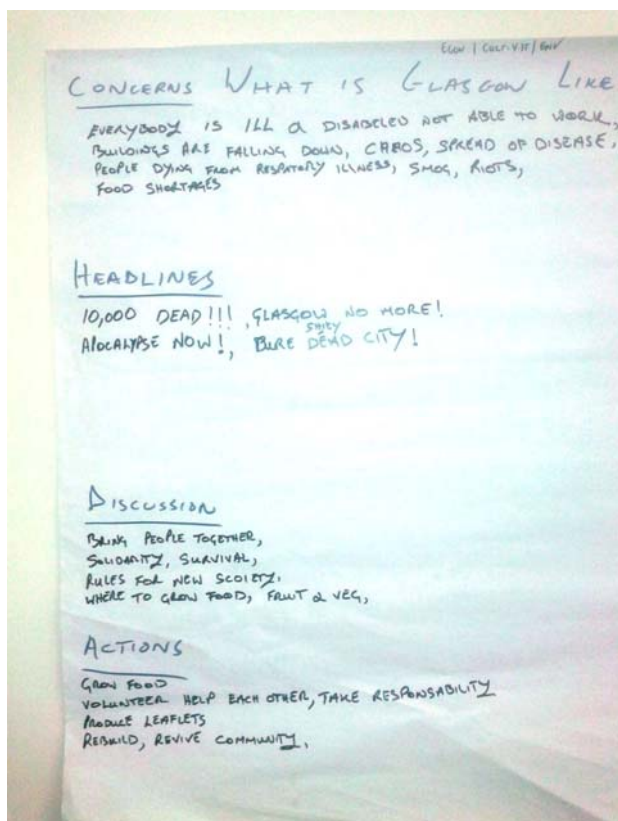 CONCERNS WHAT IS GLASGOW LIKE
EVERYBODY IS ILL & DISABELED NOT ABLE TO WORK,
BUILDINGS ARE FALLING DOWN, CHAOS, SPREAD OF DISEASE,
PEOPLE DYING FROM RESPATORY ILLNESS, SMOG, RIOTS,
FOOD SHORTAGES
HEADLINES
10,000 DEAD!!!, GLASGOW NO MORE!
APOCALYPSE NOW!, PURE DEAD CITY!
DISCUSSION
BRING PEOPLE TOGETHER,
SOLIDARITY, SURVIVAL,
RULES FOR NEW SCOIETY.
WHERE TO GROW FOOD, FRUIT & VEG,
ACTIONS
GROW FOOD
VOLUNTEER HELP EACH OTHER, TAKE RESPONSABILITY
PRODUCE LEAFLETS
REBUILD, REVIVE COMMUNITY.